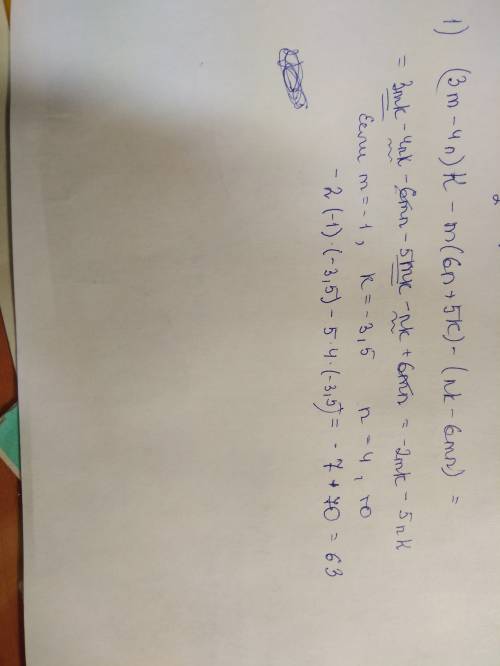 2
1) (3m - 4n)K - m(6n + 5K) - (nK - 6mn) =
= 3mK - 4nK - 6mn - 5mK - nK + 6mn = -2mK - 5nK
Если m = -1, K = -3,5 n = 4, то
- 2 (-1)·(-3,5) - 5·4·(-3,5) = - 7 + 70 = 63